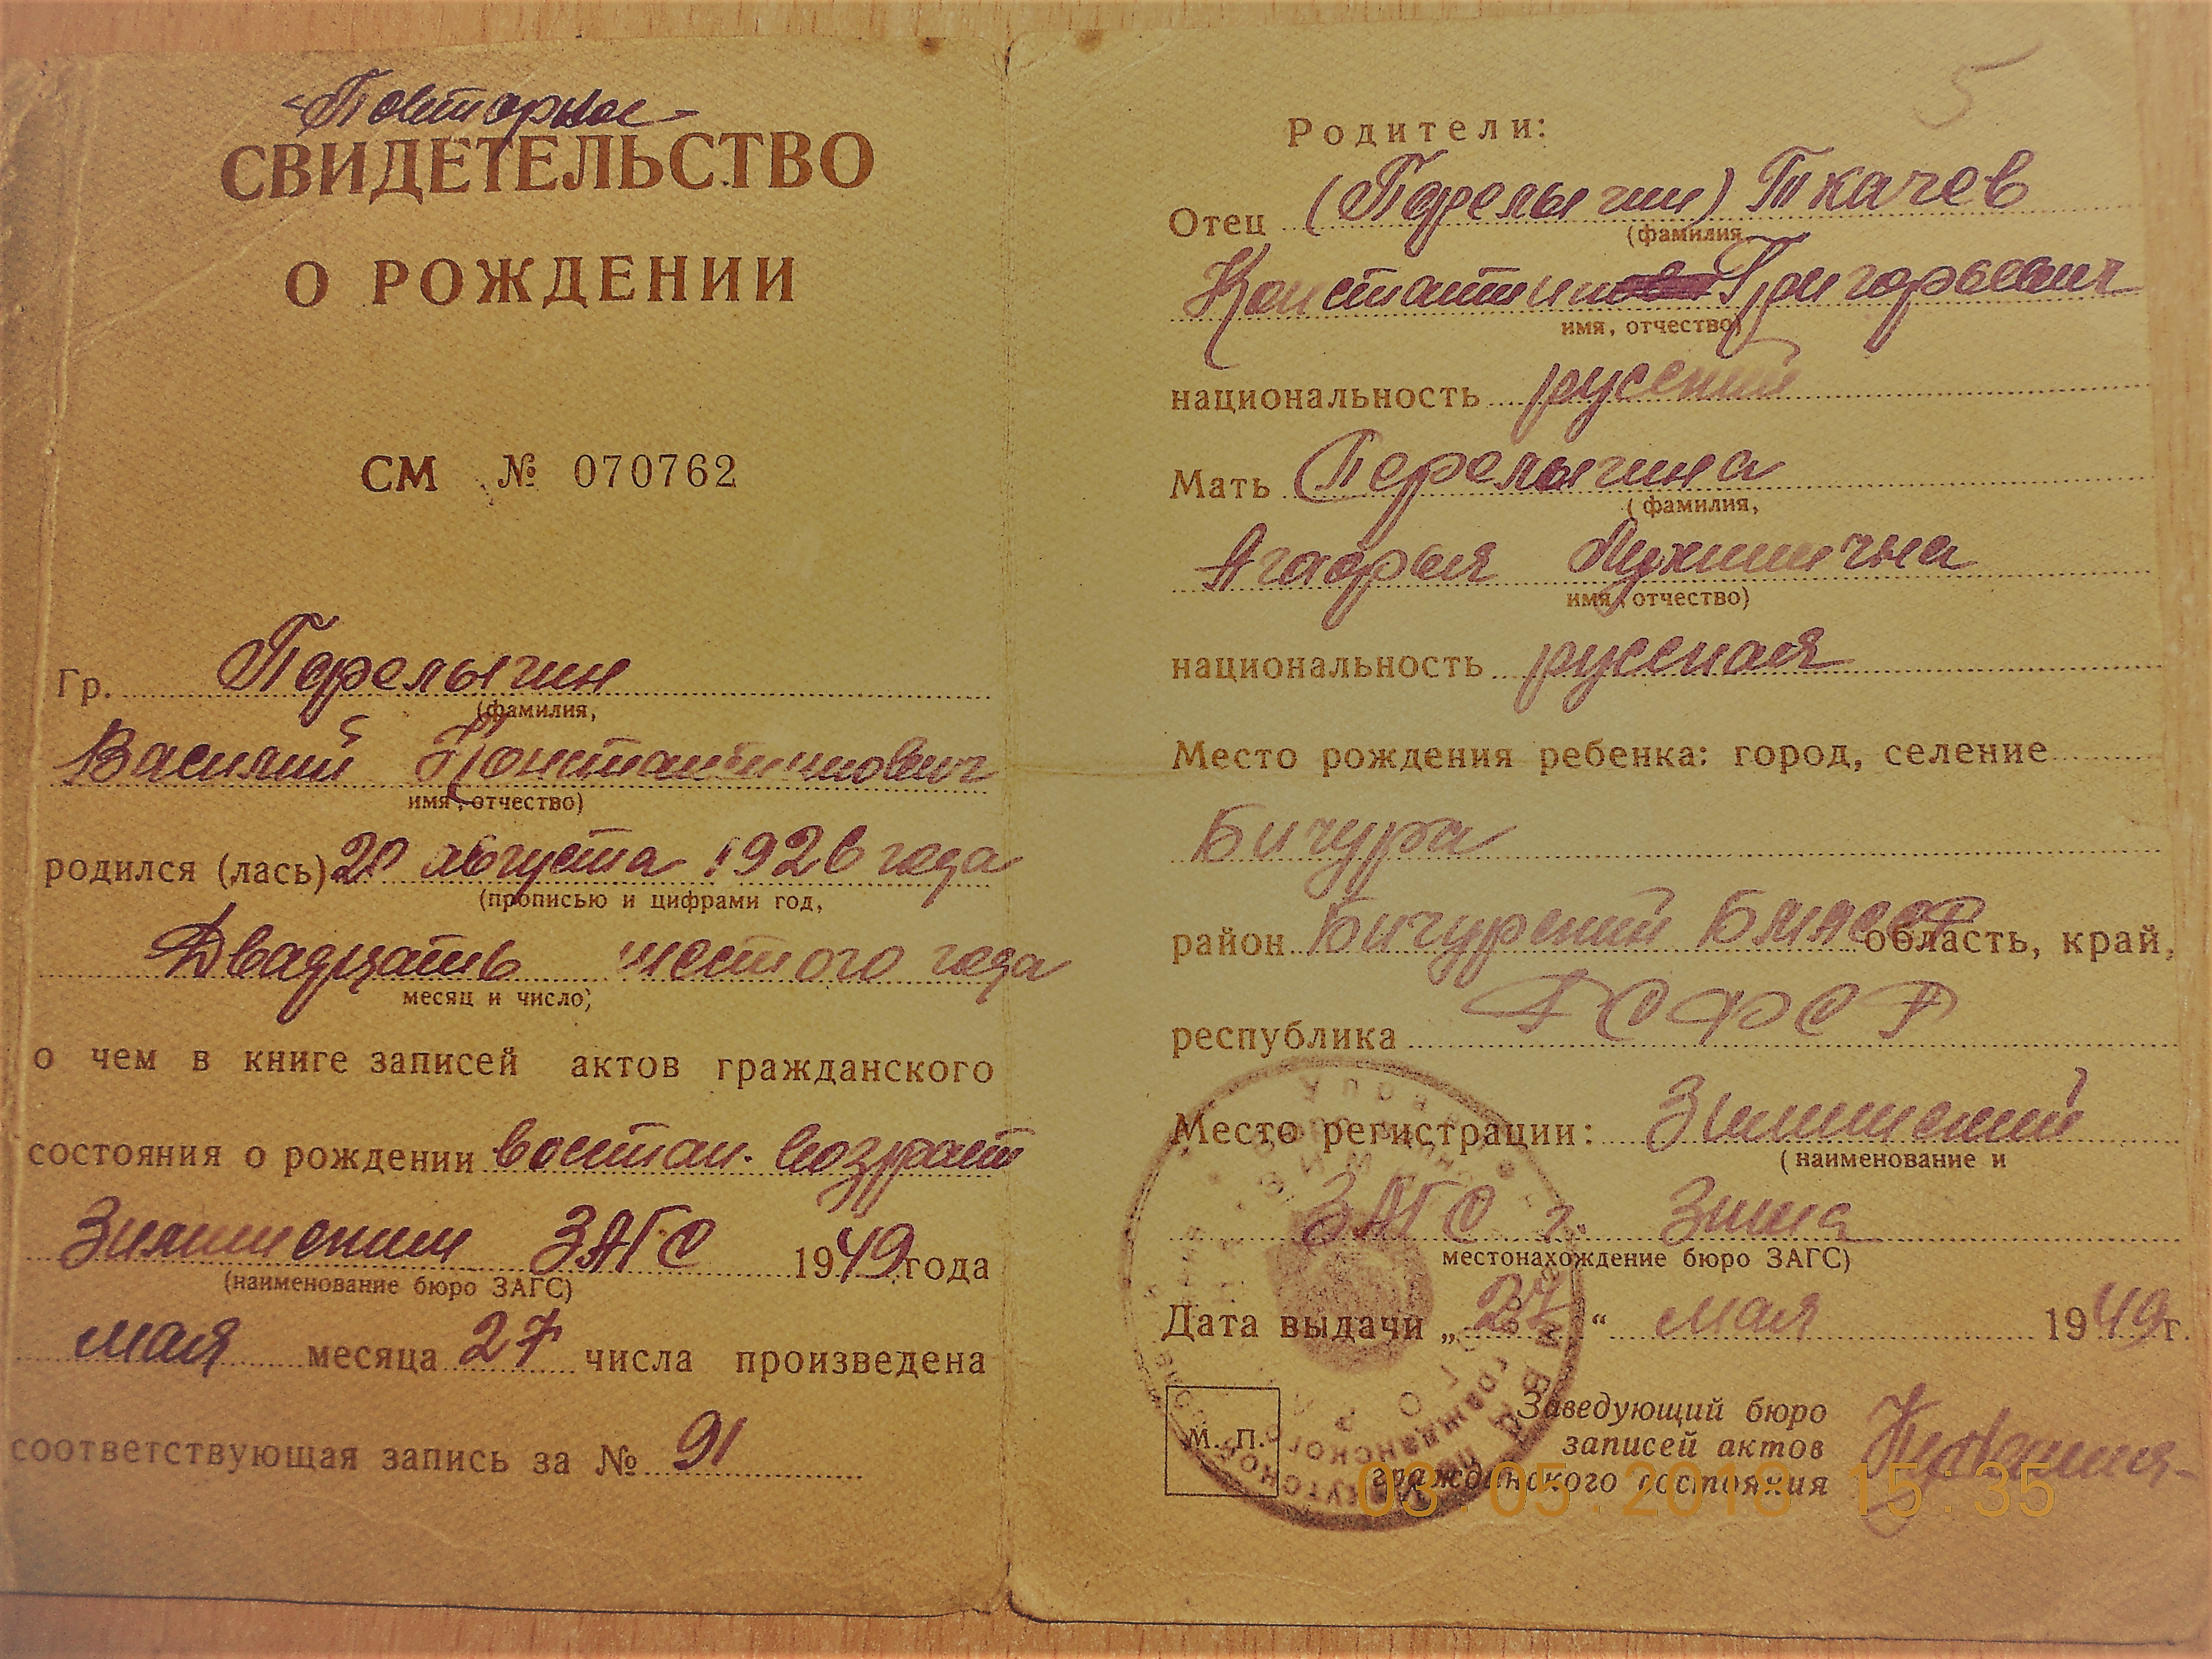 „Повторное"
СВИДЕТЕЛЬСТВО
О РОЖДЕНИИ
СМ № 070762
Гр. Перелыгин
(фамилия,
Василий Константинович
имя, отчество)
родился (лась) 20 августа 1926 года
(прописью и цифрами год,
Двадцать шестого года
месяц и число)
о чем в книге записей актов гражданского
состояния о рождении восстан. возраст
Зиминским ЗАГС 1949 года
(наименование бюро ЗАГС)
мая месяца 27 числа произведена
соответствующая запись за № 91
5
Родители:
Отец (Перелыгин) Ткачев
(фамилия,
Константин Григорьевич
имя, отчество)
национальность русский
Мать Перелыгина
(фамилия,
Агафья
имя, отчество)
национальность русская
Место рождения ребенка: город, селение
Бичура
район Бичурский БМАССР область, край,
республика РСФСР
Место регистрации: Зиминский
(наименование и
ЗАГС г. Зима
местонахождение бюро ЗАГС)
Дата выдачи „27" мая 1949 г.
М. П.
Заведующий бюро
записей актов
гражданского состояния
03.05.2018 15:35